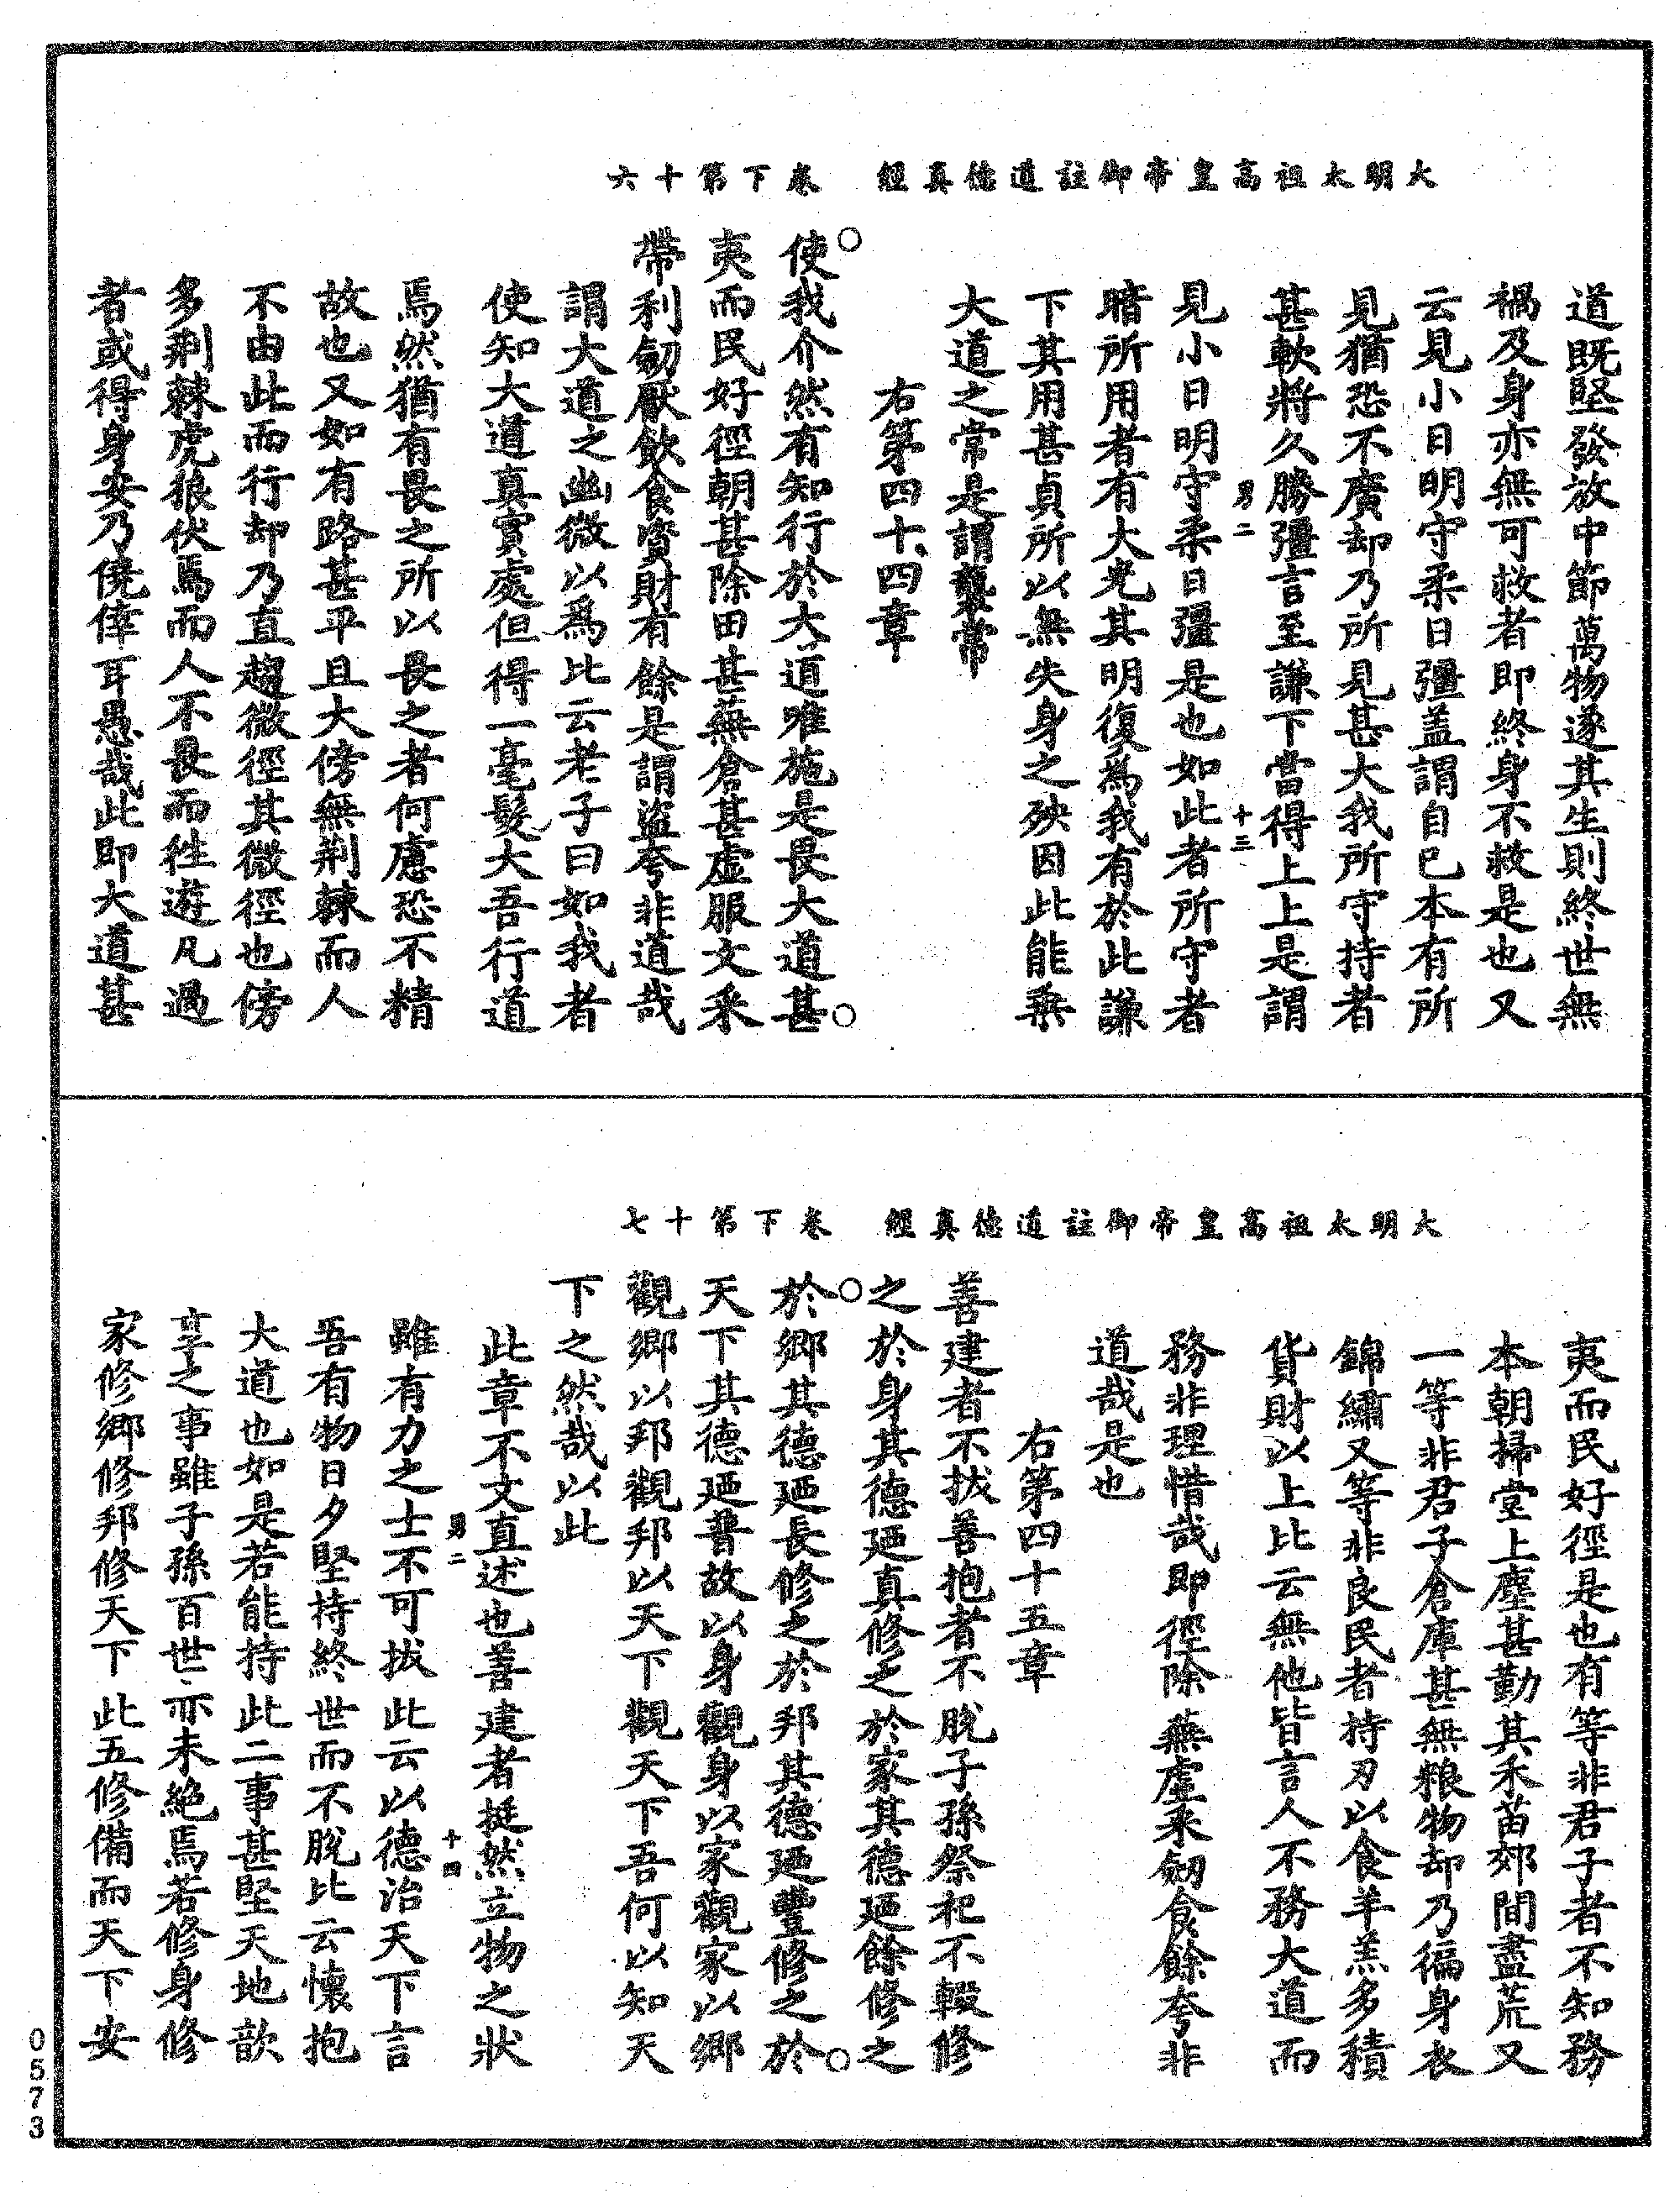 大明太祖高皇帝御註道德真經　卷下第十六
道既堅發放中節萬物遂其生則終世無
禍及身亦無可救者即終身不救是也又
云見小曰明守柔曰彊盖謂自已本有所
見猶恐不廣却乃所見甚大我所守持者
甚軟將久勝彊言至謙下當得上上是謂
男二　十三
見小曰明守柔曰彊是也如此者所守者
暗所用者有大光其明復為我有於此謙
下其用甚貞所以無失身之殃因此能乗
大道之常是謂襲常
右第四十四章
使我介然有知行於大道唯施是畏大道甚
夷而民好徑朝甚除田甚蕪倉甚虛服文采
帶利劒厭飲食資財有餘是謂盜夸非道哉
謂大道之幽微以爲比云老子曰如我者
使知大道真實處但得一毫髮大吾行道
焉然猶有畏之所以畏之者何慮恐不精
故也又如有路甚平且大傍無荆棘而人
不由此而行却乃直趨微徑其微徑也傍
多荆棘虎狼伏焉而人不畏而徃遊凡過
者或得身安乃僥倖耳愚哉此即大道甚
大明太祖高皇帝御註道德真經　卷下第十七
夷而民好徑是也有等非君子者不知務
本朝掃堂上塵甚勤其禾苗郊間盡荒又
一等非君子倉庫甚無粮物却乃徧身衣
錦繡又等非良民者持刃以食羊羔多積
貨財以上比云無他皆言人不務大道而
務非理惜哉即徑除蕪虛采劒食餘夸非
道哉是也
右第四十五章
善建者不拔善抱者不脫子孫祭祀不輟修
之於身其德廼真修之於家其德廼餘修之
於鄉其德廼長修之於邦其德廼豐修之於
天下其德廼普故以身觀身以家觀家以鄉
觀鄉以邦觀邦以天下觀天下吾何以知天
下之然哉以此
此章不文直述也善建者挺然立物之狀
男二　十四
雖有力之士不可拔此云以德治天下言
吾有物日夕堅持終世而不脫比云懷抱
大道也如是若能持此二事甚堅天地歆
享之事雖子孫百世亦未絕焉若修身修
家修鄉修邦修天下此五修備而天下安
0573